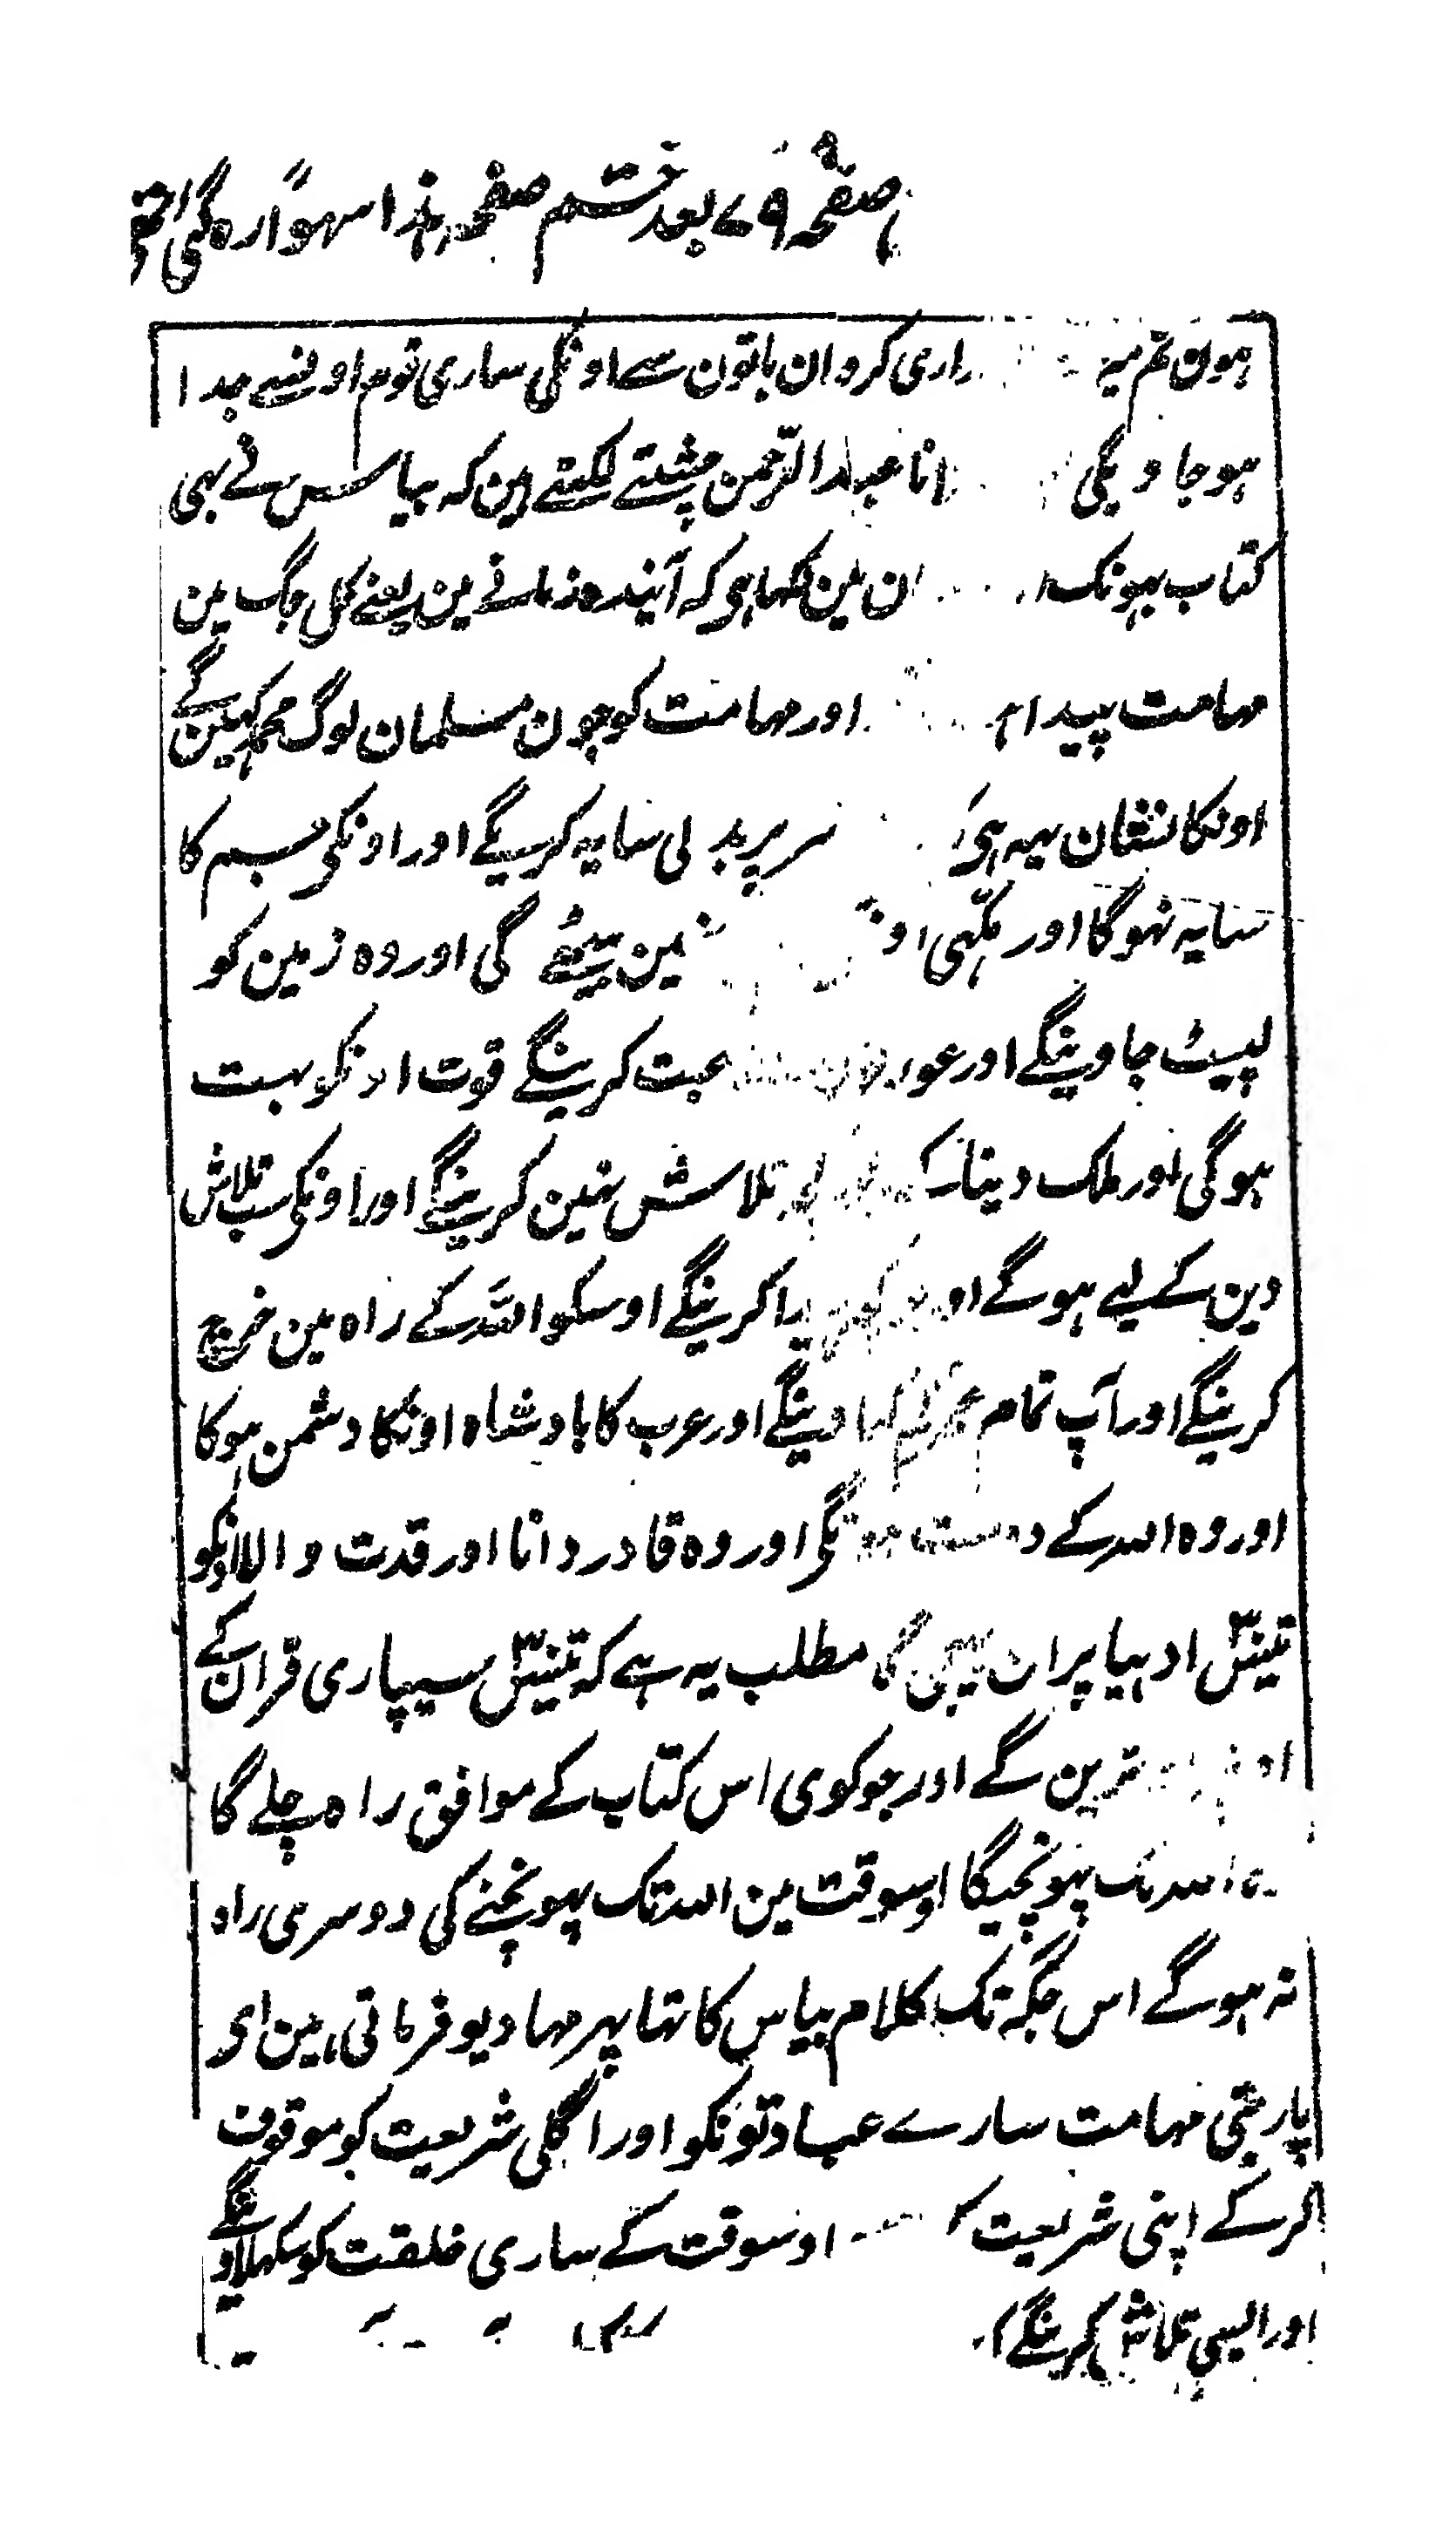 صفحہ ۷۹ بعد ختم صفحہ ہذا سہواً رہ گئی
ہون تم میر راری کرو ان باتون سے اونکی ساری قوم اونسے جدا
ہو جاویگی انا عبدالرحمن چشتے لکہتے ہین کہ بیاس نے بہی
کتاب بہونک ان مین لکہا ہی کہ آیندہ زمانے مین یعنے کل جگ مین
مہامت پیدا ہ اور مہامت کو جون مسلمان لوگ محمد کہین گے
اونکا نشان یہہ ہی سر پر بدلی سایہ کریگے اور اونکی جسم کا
سایہ نہوگا اور مکہی او ین بیٹھے گی اور وہ زمین کو
لپیٹ جاوینگے اور عور حبت کرینگے قوت اونکو بہت
ہوگی اور ملک دینار کے تلاش نہین کرینگے اور اونکی سب تلاش
دین کے لیے ہوگے اور یدا کرینگے اوسکو اللہ کے راہ مین خرچ
کرینگے اور آپ تمام عمر کم کہاوینگے اور عرب کا بادشاہ اونکا دشمن ہوگا
اور وہ اللہ کے دوست ہونگی اور وہ قادر دانا اور قدت والا اونکو
تیس ادہیا پران بہیجی گا مطلب یہ ہے کہ تیس سیپاری قران کے
اترین گے اور جو کوی اس کتاب کے موافق راہ چلے گا
وہ اللہ تک پہونچیگا اوسوقت مین اللہ تک پہونچنے کی دوسری راہ
نہ ہوگے اس جگہ تک کلام بیاس کا تہا پہر مہادیو فرماتی ہین ای
پاربتی مہامت سارے عبادتونکو اور اگلی شریعت کو موقوف
کرکے اپنی شریعت اوسوقت کے ساری خلقت کو سکہلاوینگے
اور ایسی تلاش کرینگے